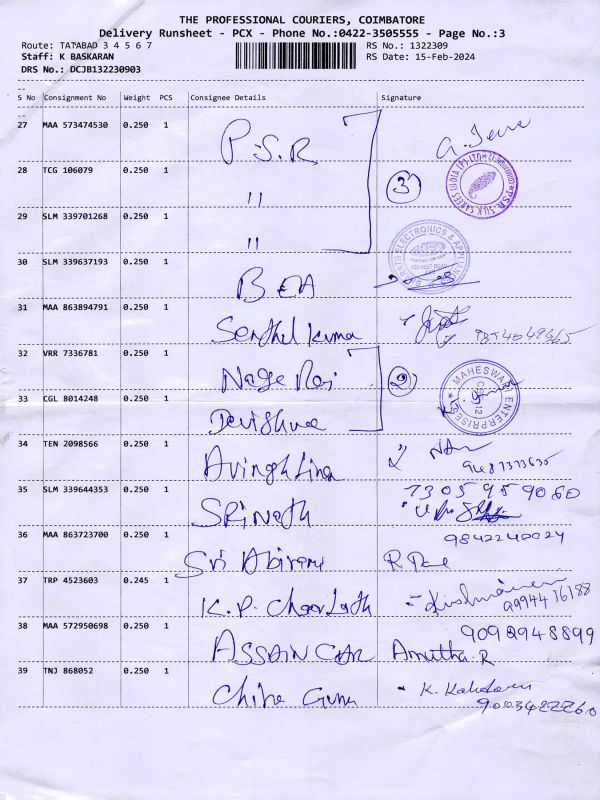 THE PROFESSIONAL COURIERS, COIMBATORE
Delivery Runsheet - PCX - Phone No.:0422-3505555 - Page No.:3
Route: TATABAD 3 4 5 6 7 RS No.: 1322309
Staff: K BASKARAN RS Date: 15-Feb-2024
DRS No.: DCJB132230903
S No Consignment No Weight PCS Consignee Details Signature
27 MAA 573474530 0.250 1 P.S.R
28 TCG 106079 0.250 1 " 3
29 SLM 339701268 0.250 1 "
30 SLM 339637193 0.250 1
31 MAA 863894791 0.250 1 Senthil Kumar
32 VRR 7336781 0.250 1 Nage Raj 2
MAHESWARI ENTERPRISES
33 CGL 8014248 0.250 1
34 TEN 2098566 0.250 1
35 SLM 339644353 0.250 1 SRiNath 7305959060
36 MAA 863723700 0.250 1 Sri Abirami 9842240024
37 TRP 4523603 0.245 1 K.P. 9994416188
38 MAA 572950698 0.250 1 ASSAIN CAR Amutha.R
39 TNJ 868052 0.250 1 9003422260